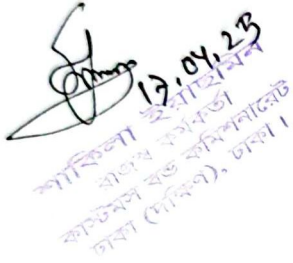 17.04.23
শাকিলা ইয়াছমিন
রাজস্ব কর্মকর্তা
কাস্টমস বন্ড কমিশনারেট
ঢাকা (দক্ষিণ), ঢাকা।